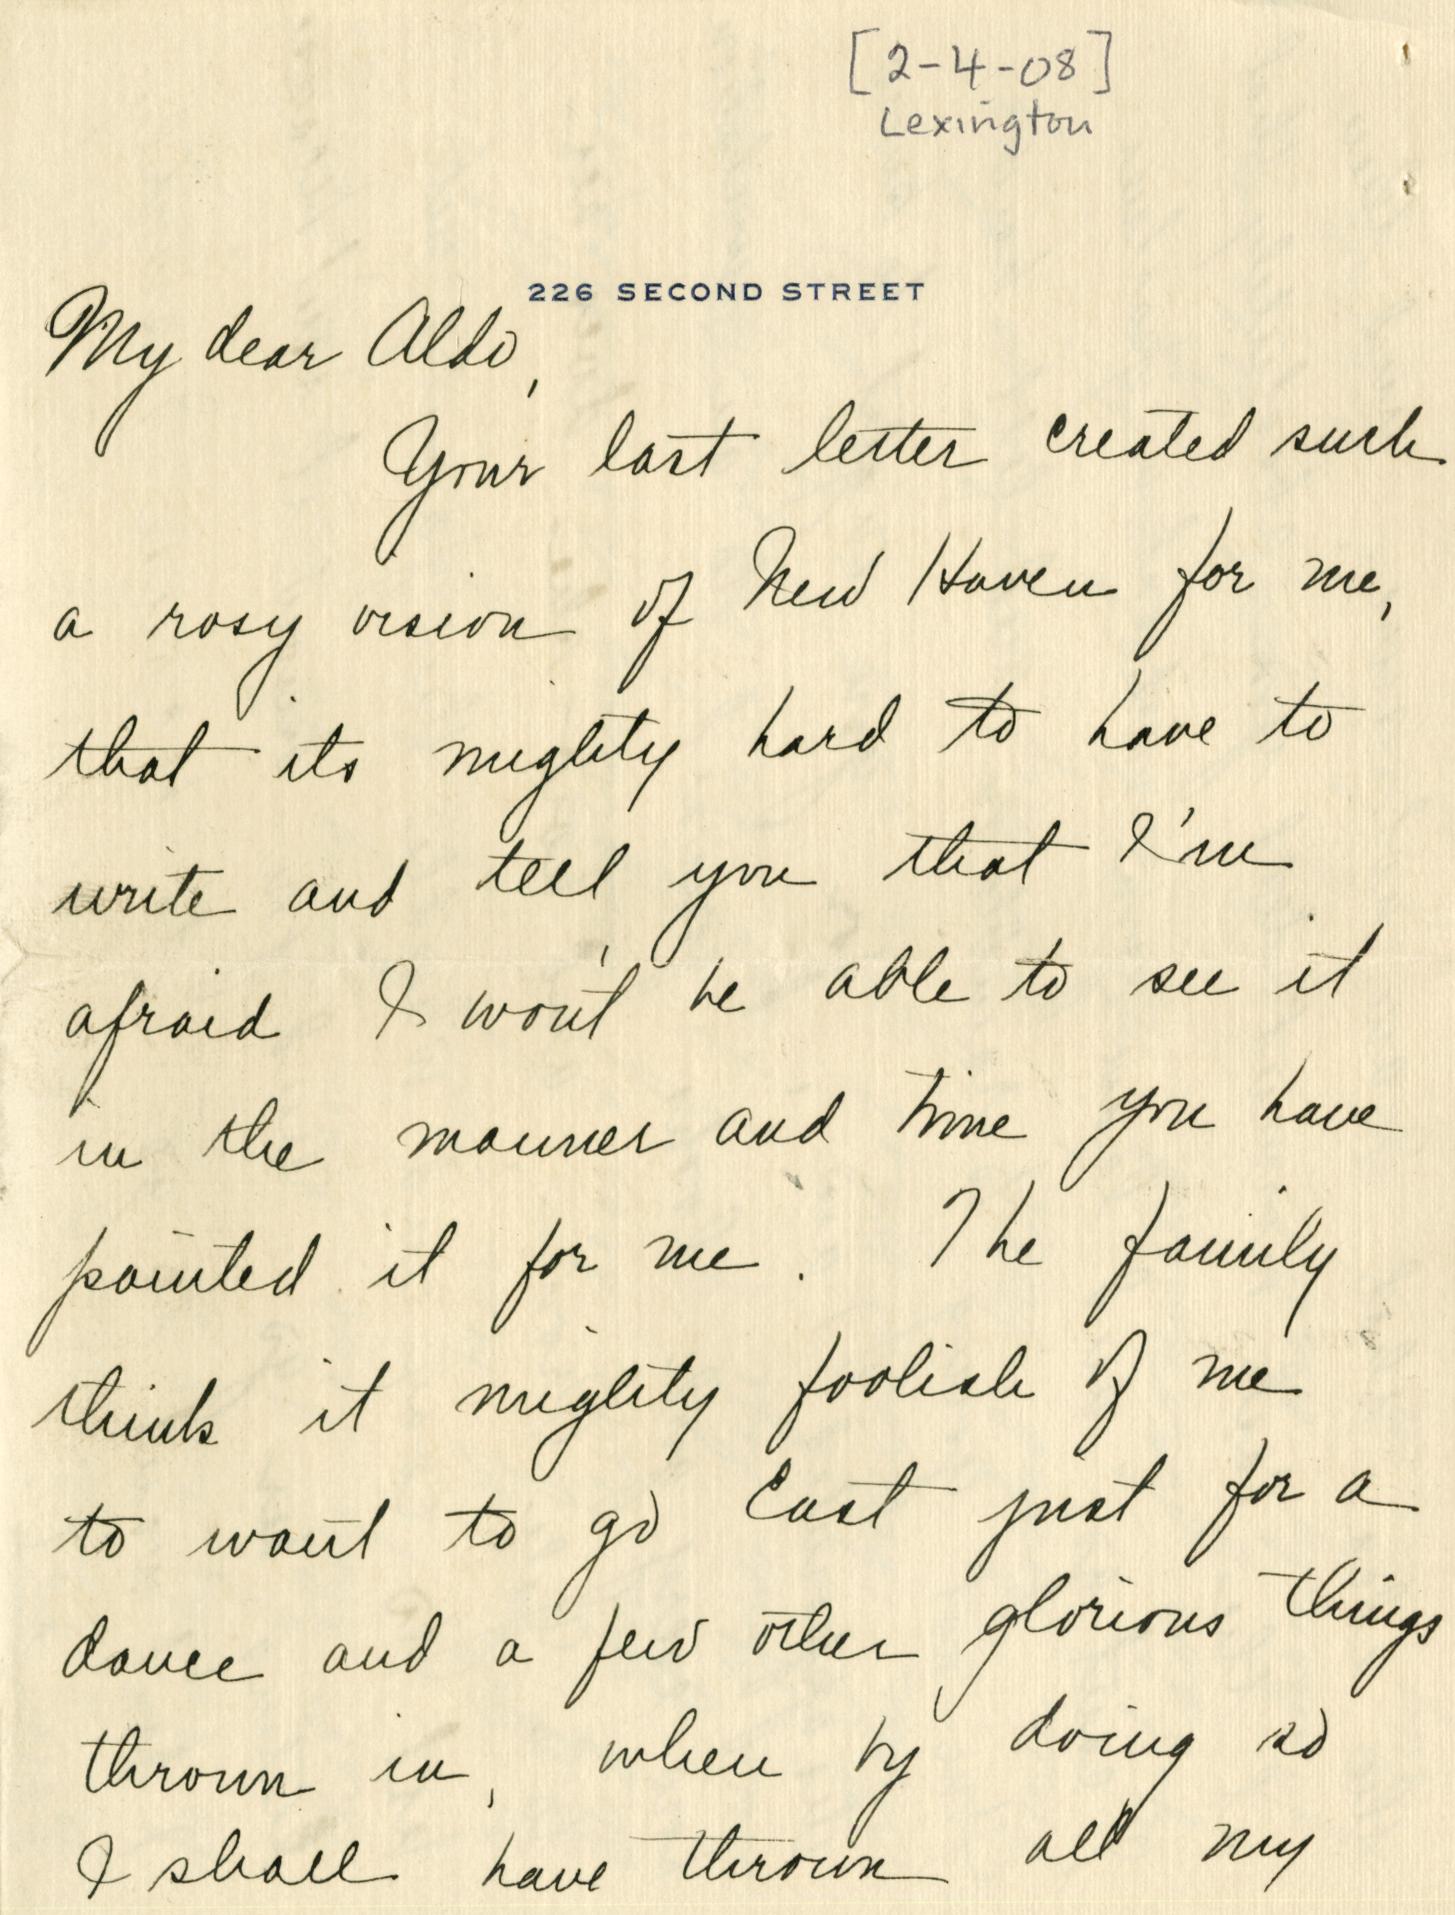 [2-4-08]
Lexington
226 SECOND STREET
My dear Aldo,
Your last letter created such
a rosy vision of New Haven for me,
that its mighty hard to have to
write and tell you that I'm
afraid I won't be able to see it
in the manner and time you have
painted it for me. The family
think it mighty foolish of me
to want to go East just for a
dance and a few other glorious things
thrown in, when by doing so
I shall have thrown all my